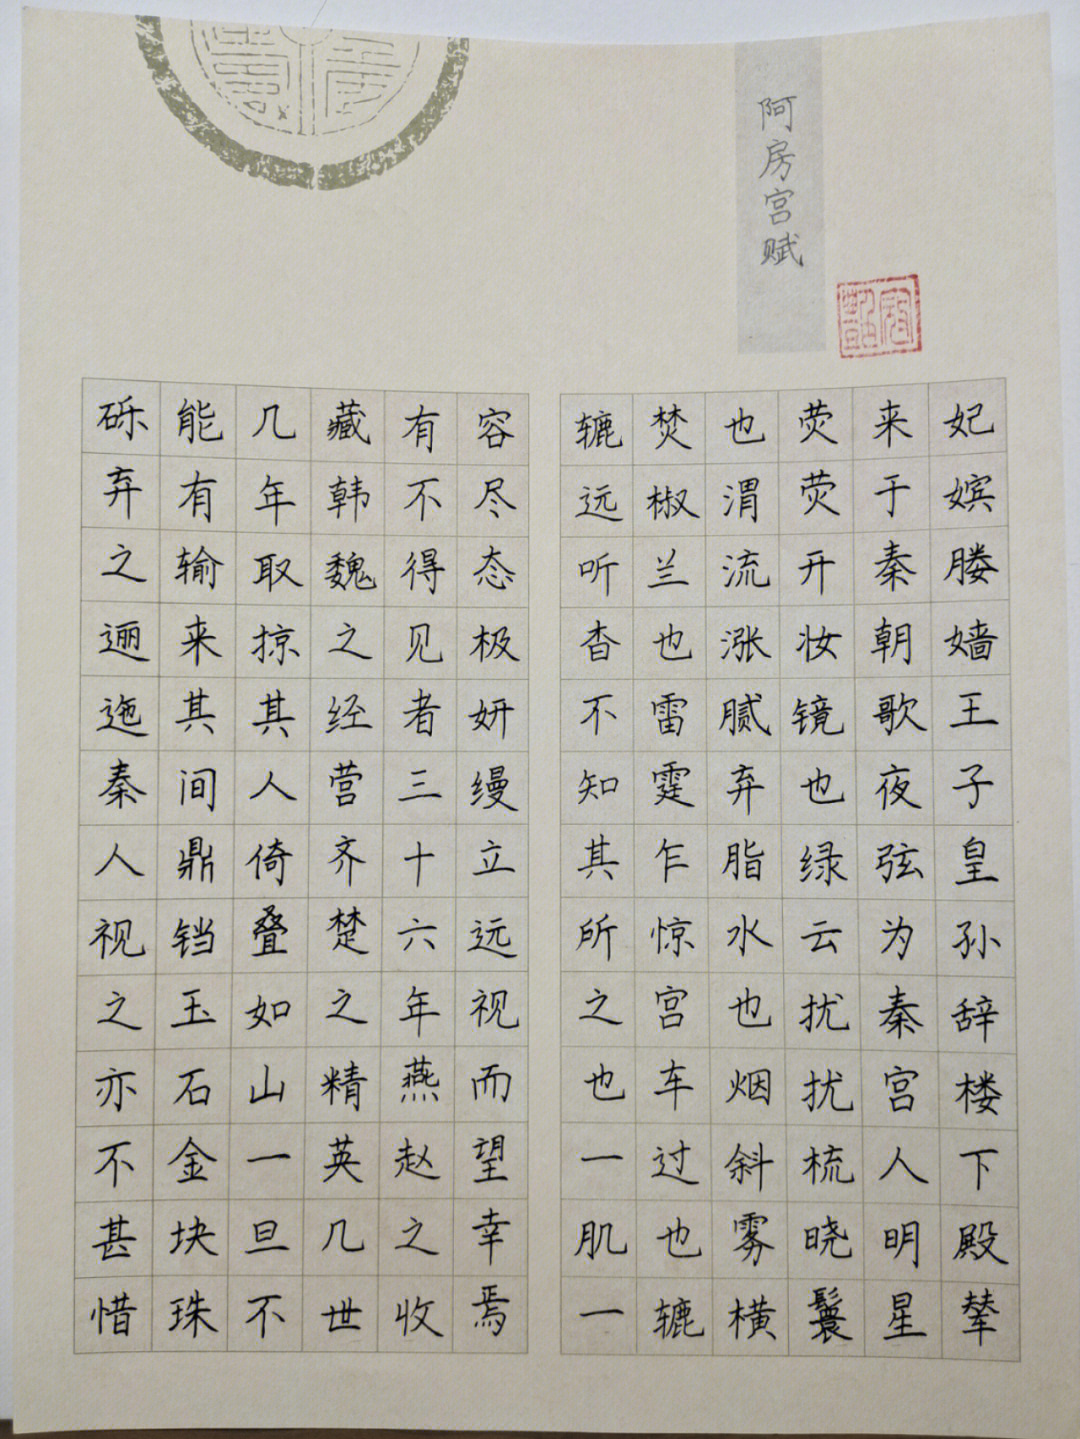 阿房宫赋
妃嫔媵嫱王子皇孙辞楼下殿辇
来于秦朝歌夜弦为秦宫人明星
荧荧开妆镜也绿云扰扰梳晓鬟
也渭流涨腻弃脂水也烟斜雾横
焚椒兰也雷霆乍惊宫车过也辘
辘远听杳不知其所之也一肌一
容尽态极妍缦立远视而望幸焉
有不得见者三十六年燕赵之收
藏韩魏之经营齐楚之精英几世
几年取掠其人倚叠如山一旦不
能有输来其间鼎铛玉石金块珠
砾弃之逦迤秦人视之亦不甚惜